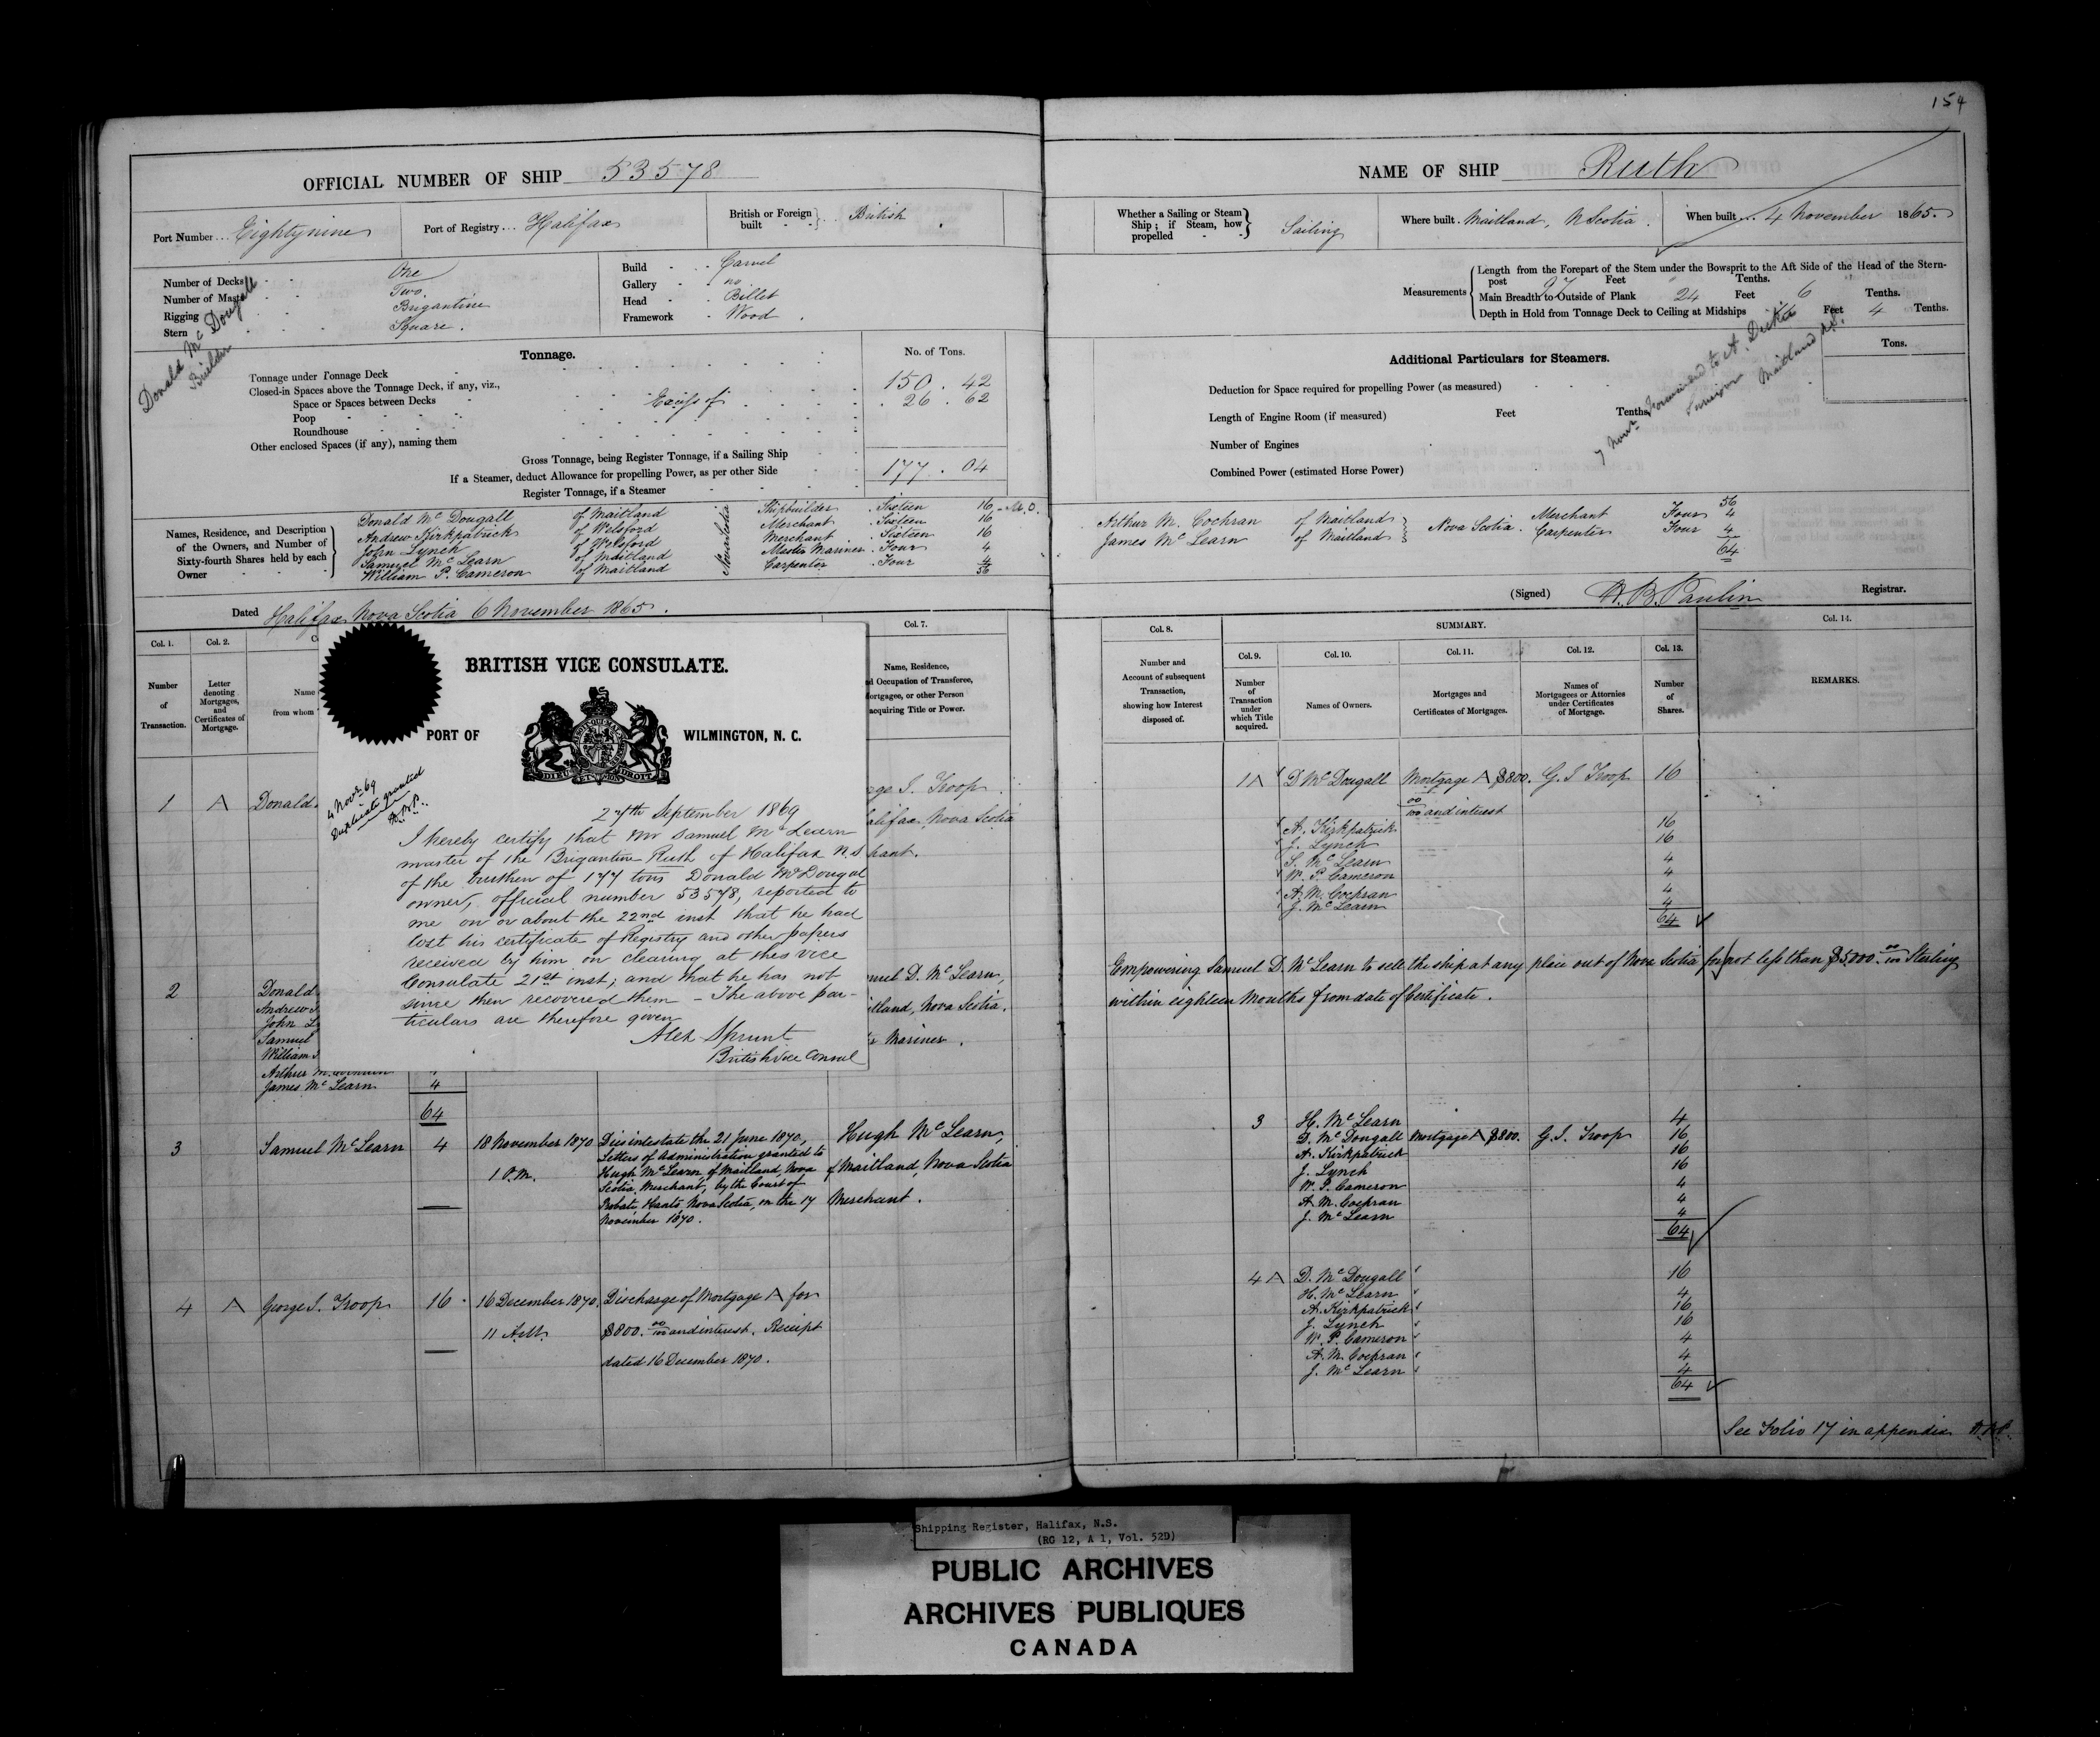 154
OFFICIAL NUMBER OF SHIP 53578
Port Number... Eightynine
Port of Registry... Halifax
British or Foreign built British
Number of Decks One
Number of Masts Two
Rigging Brigantine
Stern Square.
Build Carvel
Gallery no
Head Billet
Framework Wood
Donald Mc Dougall
Builder
Tonnage. No. of Tons.
Tonnage under Tonnage Deck 150.42
Closed-in Spaces above the Tonnage Deck, if any, viz.,
Space or Spaces between Decks Excess of 26.62
Poop
Roundhouse
Other enclosed Spaces (if any), naming them
Gross Tonnage, being Register Tonnage, if a Sailing Ship 177.04
If a Steamer, deduct Allowance for propelling Power, as per other Side
Register Tonnage, if a Steamer
Names, Residence, and Description of the Owners, and Number of Sixty-fourth Shares held by each Owner
Donald Mc Dougall of Maitland Shipbuilder Sixteen 16
Andrew Kirkpatrick of Welsford Merchant Sixteen 16
John Lynch of Welsford Merchant Sixteen 16
Samuel Mc Learn of Maitland Master Mariner Four 4
William P. Cameron of Maitland Carpenter Four 4
Nova Scotia
56
Dated Halifax Nova Scotia 6 November 1865.
Col. 1. Col. 2. Col. 7.
Number of Transaction.
Letter denoting Mortgages, and Certificates of Mortgage.
Name
from whom
Name, Residence,
d Occupation of Transferee,
ortgagee, or other Person
acquiring Title or Power.
1 A Donald
ge I. Troop
alifax Nova Scotia
hant.
BRITISH VICE CONSULATE.
PORT OF WILMINGTON, N. C.
DIEU ET MON DROIT
4 Novr 69
Duplicate granted
27th September 1869
I hereby certify that Mr Samuel McLearn
master of the Brigantine Ruth of Halifax N.S
of the burthen of 177 tons Donald McDougal
owner, official number 53578, reported to
me on or about the 22nd inst that he had
lost his certificate of Registry and other papers
received by him on clearing at this Vice
Consulate 21st inst; and that he has not
since then recovered them – The above par-
ticulars are therefore given
Alex Sprunt
British Vice Consul
2 Donald
Andrew
John L
Samuel
William
Arthur M. Cochran
James Mc Learn 4
64
nuel D. Mc Learn,
itland, Nova Scotia.
Mariner.
3 Samuel McLearn 4 18 November 1870 1 P.M.
Dies intestate the 21 June 1870,
Letters of Administration granted to
Hugh McLearn, of Maitland, Nova
Scotia, Merchant, by the Court of
Probate, Hants, Nova Scotia, on the 17
November 1870.
Hugh McLearn,
of Maitland, Nova Scotia
Merchant.
4 A George I. Troop 16 16 December 1870, 11 A.M.
Discharge of Mortgage A for
$800. 00/100 and interest. Receipt
dated 16 December 1870.
NAME OF SHIP Ruth
Whether a Sailing or Steam Ship; if Steam, how propelled Sailing
Where built Maitland, N Scotia.
When built 4 November 1865.
Measurements
Length from the Forepart of the Stem under the Bowsprit to the Aft Side of the Head of the Stern-
post 97 Feet Tenths.
Main Breadth to Outside of Plank 24 Feet 6 Tenths.
Depth in Hold from Tonnage Deck to Ceiling at Midships Feet 4 Tenths.
Additional Particulars for Steamers. Tons.
Deduction for Space required for propelling Power (as measured)
Length of Engine Room (if measured) Feet Tenths
Number of Engines
Combined Power (estimated Horse Power)
7 Novr Forwarded to A. Dickie
Surveyor Maitland N.S.
56
Arthur M. Cochran of Maitland Nova Scotia. Merchant Four 4
James Mc Learn of Maitland Carpenter Four 4
64
(Signed) H. B. Paulin Registrar.
Col. 8. SUMMARY. Col. 14.
Col. 9. Col. 10. Col. 11. Col. 12. Col. 13.
Number and Account of subsequent Transaction, showing how Interest disposed of.
Number of Transaction under which Title acquired.
Names of Owners.
Mortgages and Certificates of Mortgages.
Names of Mortgagees or Attornies under Certificates of Mortgage.
Number of Shares.
REMARKS.
1A D McDougall Mortgage A $800. 00/100 and interest G. I Troop 16
A. Kirkpatrick 16
J. Lynch 16
S. McLearn 4
W. P. Cameron 4
A. M. Cochran 4
J. McLearn 4
64
Empowering Samuel D. McLearn to sell the ship at any place out of Nova Scotia for not less than $5000. 00/100 Sterling
within eighteen Months from date of Certificate.
3 H. McLearn 4
D. McDougall Mortgage A $800. G. I. Troop 16
A. Kirkpatrick 16
J. Lynch 16
W. P. Cameron 4
A. M. Cochran 4
J. McLearn 4
64
4 A D. McDougall 16
H. McLearn 4
A. Kirkpatrick 16
J. Lynch 16
W. P. Cameron 4
A. M. Cochran 4
J. McLearn 4
64
See Folio 17 in appendix
Shipping Register, Halifax, N.S.
(RG 12, A 1, Vol. 52D)
PUBLIC ARCHIVES
ARCHIVES PUBLIQUES
CANADA